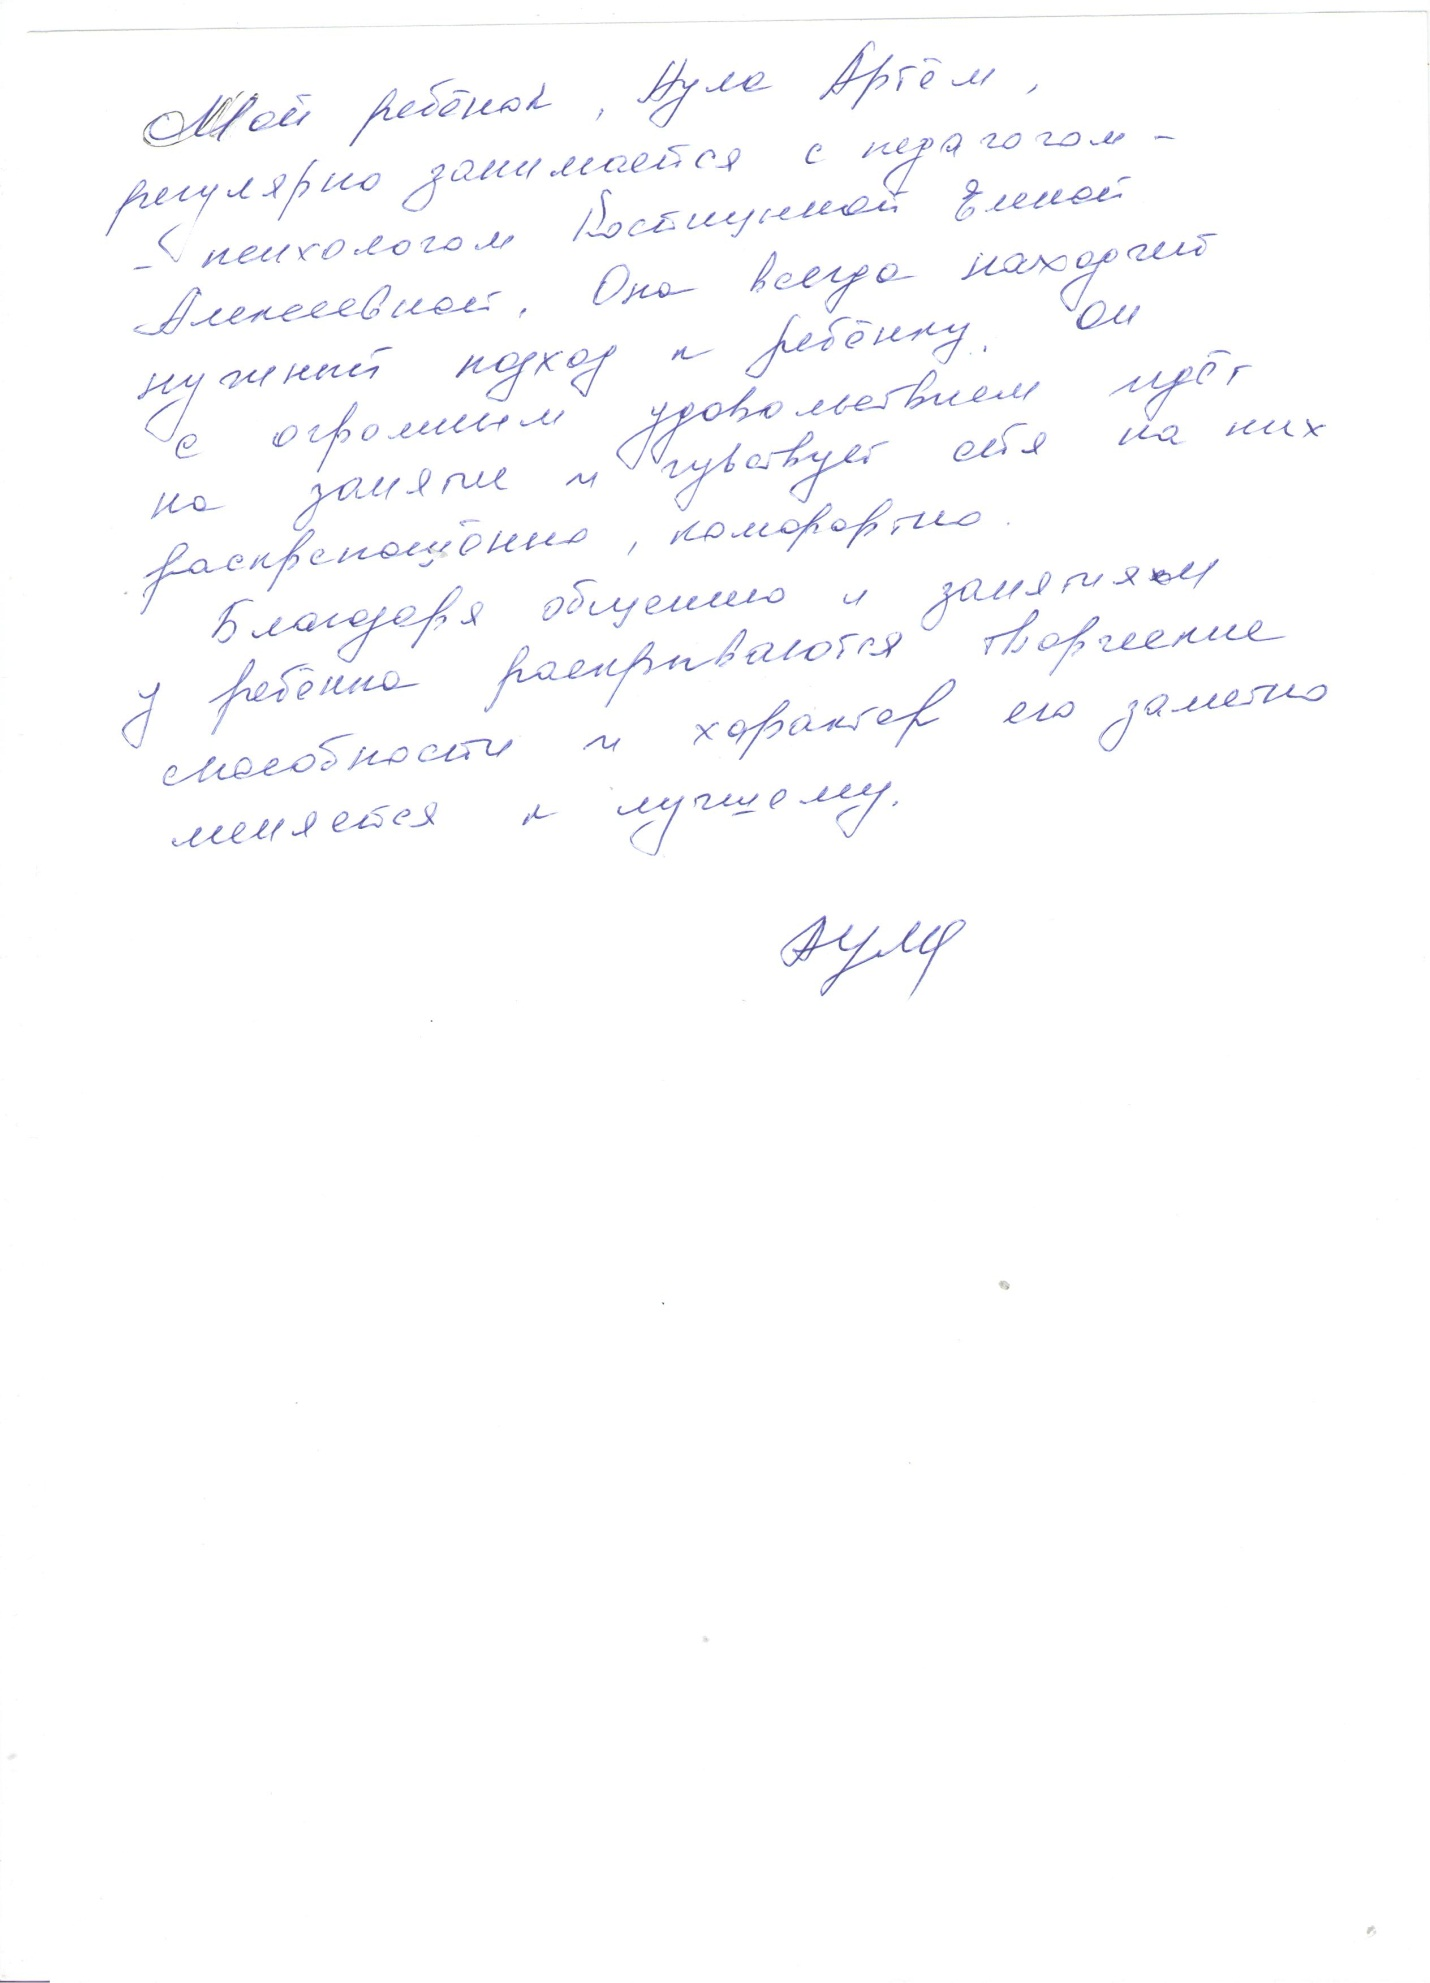 Мой ребёнок, Аула Артём,
регулярно занимается с педагогом -
- психологом Костициной Еленой
Алексеевной. Она всегда находит
нужный подход к ребёнку. Он
с огромным удовольствием идёт
на занятие и чувствует себя на них
раскрепощённо, комфортно.
Благодаря общению и занятиям
у ребёнка раскрываются творческие
способности и характер его заметно
меняется к лучшему.
Аула